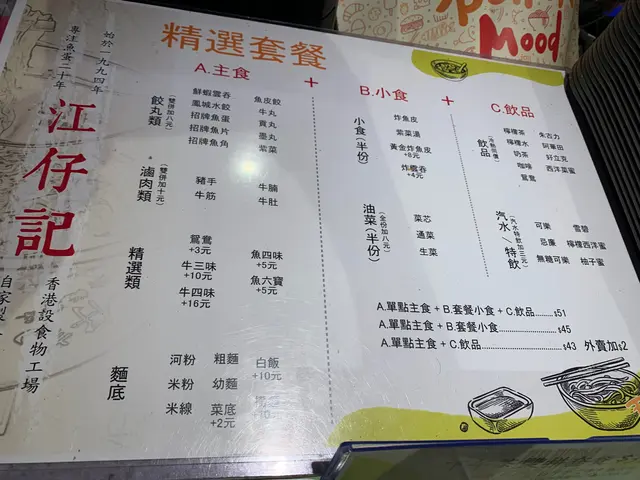 Mood
精選套餐
A.主食
+
B.小食
+
C.飲品
始於一九九四年
專注魚蛋二十年
江仔記
香港設食物工場
自家製
餃丸類
(雙併加八元)
鮮蝦雲吞 魚皮餃
鳳城水餃 牛丸
招牌魚蛋 貢丸
招牌魚片 墨丸
招牌魚角 紫菜
滷肉類
(雙併加十元)
豬手 牛腩
牛筋 牛肚
精選類
鴛鴦 魚四味
+3元 +5元
牛三味 魚六寶
+10元 +5元
牛四味
+16元
麵底
河粉 粗麵 白飯
+10元
米粉 幼麵
米線 菜底
+2元
小食(半份)
炸魚皮
紫菜湯
黃金炸魚皮
+8元
炸雲吞
+4元
油菜(半份)
(全份加八元)
菜芯
通菜
生菜
飲品
檸檬茶 朱古力
檸檬水 阿華田
奶茶 好立克
咖啡 西洋菜蜜
鴛鴦
汽水/特飲
(汽水特飲加三元)
可樂 雪碧
忌廉 檸檬西洋蜜
無糖可樂 柚子蜜
A.單點主食 + B.套餐小食 + C.飲品........$51
A.單點主食 + B.套餐小食........................$45
A.單點主食 + C.飲品................................$43 外賣加$2